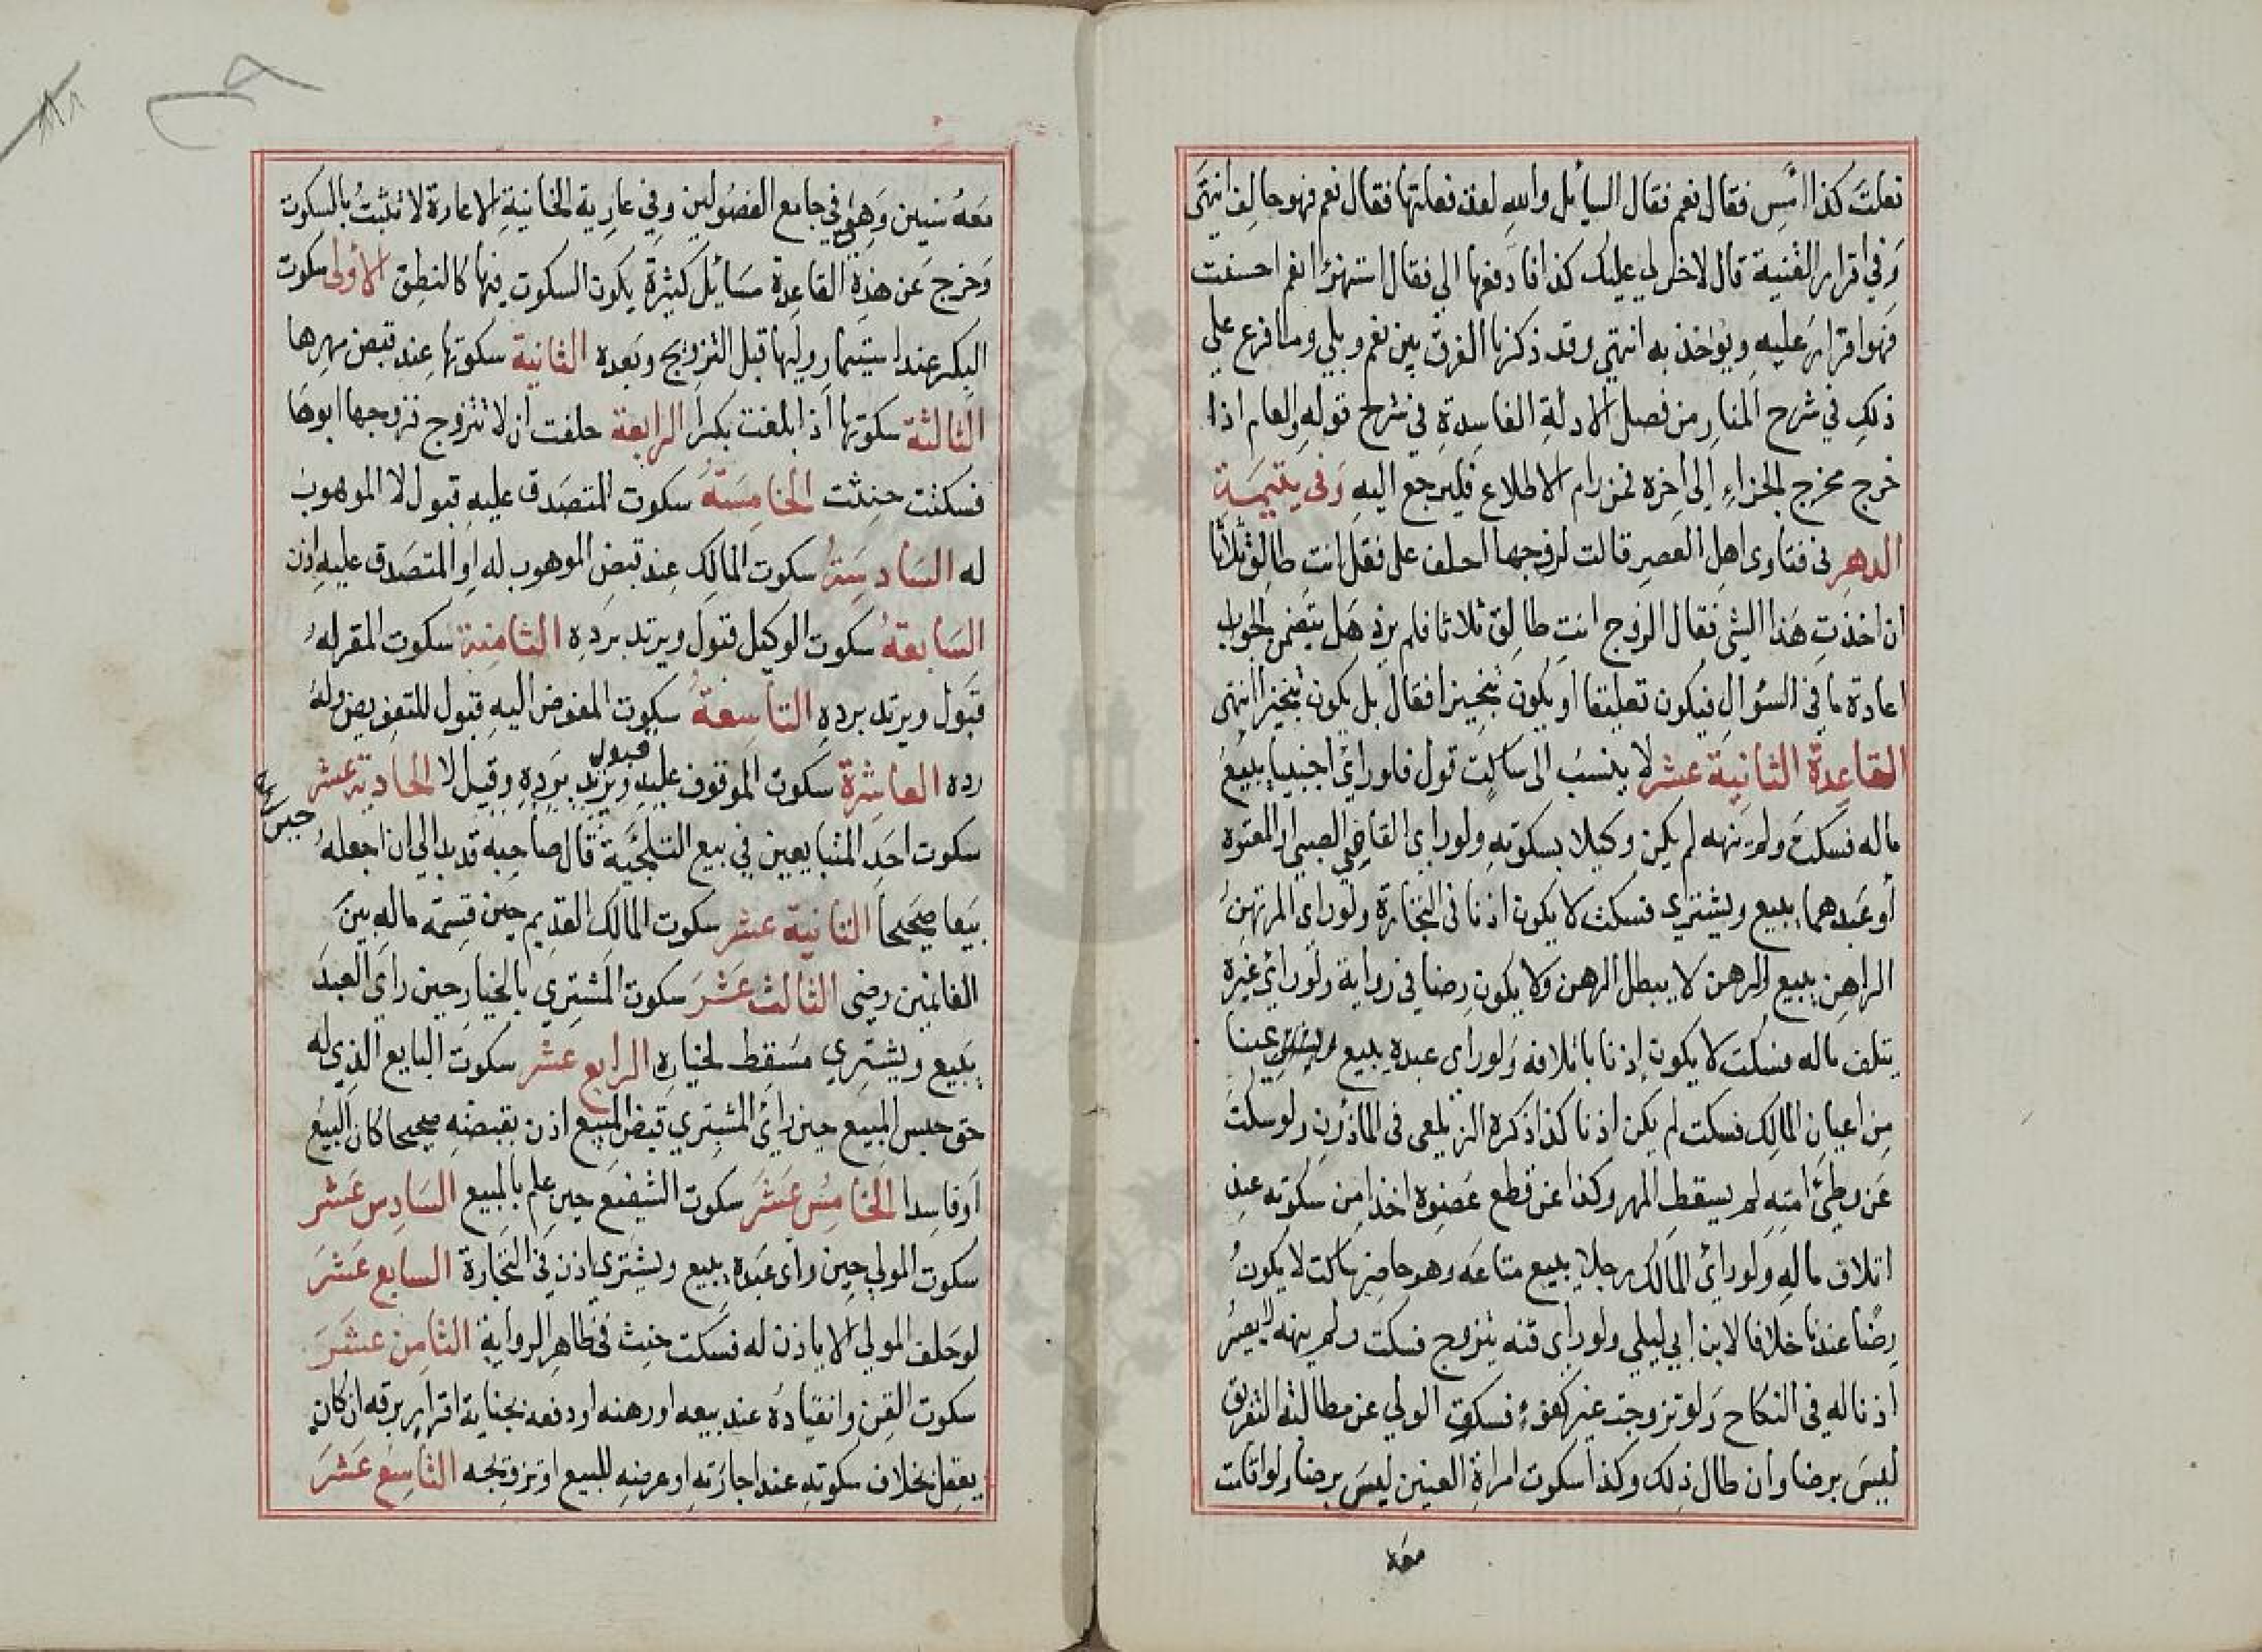 فعلت كذا امس فقال نعم فقال السائل والله لقد فعلتها فقال نعم فهو حالف انتهى
وفي اقرار القنية قال لاخر لي عليك كذا فادفعها الي فقال استهزؤا نعم احسنت
فهو اقرار عليه ويؤاخذ به انتهى وقد ذكرنا الفرق بين نعم وبلى وما فرع على
ذلك في شرح المنار من فصل الادلة الفاسدة في شرح قوله والعام اذا
خرج مخرج الجزاء الى اخره فمن رام الاطلاع فليرجع اليه وفي يتيمة
الدهر في فتاوى اهل العصر قالت لزوجها احلف على فقل انت طالق ثلاثا
ان اخذت هذا الشي فقال الزوج انت طالق ثلاثا فلم يزد هل يتضمن الجواب
اعادة ما في السؤال فيكون تعليقا او يكون تنجيزا فقال بل يكون تنجيزا انتهى
القاعدة الثانية عشر لا ينسب الى ساكت قول فلو راى اجنبيا يبيع
ماله فسكت ولم ينهه لم يكن وكيلا بسكوته ولو راى القاضي الصبي او المعتوه
أو عبدهما يبيع ويشتري فسكت لا يكون اذنا في التجارة ولو راى المرتهن
الراهن يبيع الرهن لا يبطل الرهن ولا يكون رضا في رواية ولو راى غيره
يتلف ماله فسكت لا يكون إذنا باتلافه ولو راى عبده يبيع عينا
من اعيان المالك فسكت لم يكن اذنا كذا ذكره الزيلعي في الماذون ولو سكت
عن وطئ امته لم يسقط المهر وكذا عن قطع عضوه اخذا من سكوته عند
اتلاف ماله ولو راى المالك رجلا يبيع متاعه وهو حاضر ساكت لا يكون
رضا عندنا خلافا لابن ابي ليلى ولو راى قنه يتزوج فسكت ولم ينهه لا يصير
اذنا له في النكاح ولو تزوجت غير كفوء فسكت الولي عن مطالبة التفريق
ليس برضا وان طال ذلك وكذا سكوت امراة العنين ليس برضا ولو اقامت
معه
معه سنين وهي في جامع الفصولين وفي عارية الخانية الاعارة لا تثبت بالسكوت
وخرج عن هذه القاعدة مسائل كثيرة يكون السكوت فيها كالنطق الأولى سكوت
البكر عند استيمار وليها قبل التزويج وبعده الثانية سكوتها عند قبض مهرها
الثالثة سكوتها اذا بلغت بكرا الرابعة حلفت ان لا تتزوج فزوجها ابوها
فسكتت حنثت الخامسة سكوت المتصدق عليه قبول لا الموهوب
له السادسة سكوت المالك عند قبض الموهوب له او المتصدق عليه اذن
السابعة سكوت الوكيل قبول ويرتد برده الثامنة سكوت المقر له
قبول ويرتد برده التاسعة سكوت المفوض اليه قبول للتفويض وله
رده العاشرة سكوت الموقوف عليه قبول ويرتد برده وقيل لا الحادية عشر
سكوت احد المتبايعين في بيع التلجئية قال صاحبه قد بدا لي ان اجعله
بيعا صحيحا الثانية عشر سكوت المالك القديم حين قسمة ماله بين
الغانمين رضى الثالث عشر سكوت المشتري بالخيار حين راى العبد
يبيع ويشتري مسقط لخياره الرابع عشر سكوت البايع الذي له
حق حبس المبيع حين راى المشتري قبض المبيع اذن بقبضه صحيحا كان البيع
أو فاسدا الخامس عشر سكوت الشفيع حين علم بالمبيع السادس عشر
سكوت المولى حين راى عبده يبيع ويشتري اذن في التجارة السابع عشر
لو حلف المولى لا ياذن له فسكت حنث في ظاهر الرواية الثامن عشر
سكوت القن وانقياده عند بيعه او رهنه او دفعه بجناية اقرار برقه ان كان
يعقل بخلاف سكوته عند اجارته او عرضه للبيع او تزويجه التاسع عشر